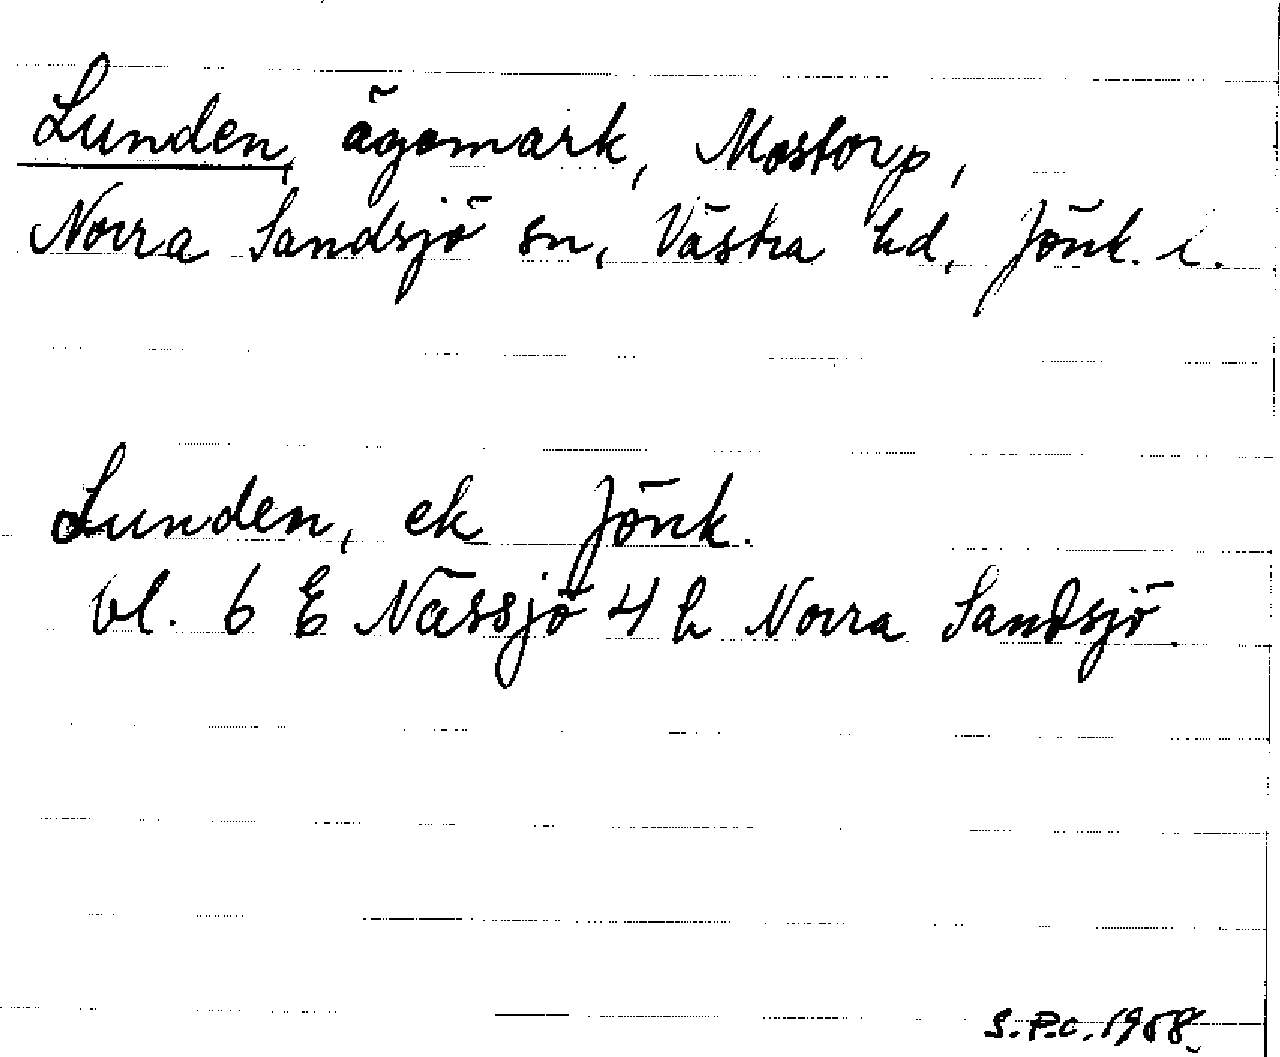 Lunden, ägomark, Mostorp,
Norra Sandsjö sn, Västra hd, Jönk. l.
Lunden, ek Jönk.
bl. 6 E Nässjö 4 h Norra Sandsjö.
S.P.C. 1958